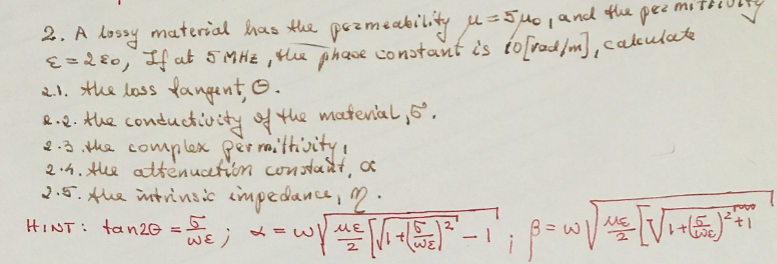 2. A lossy material has the permeability μ = 5μ₀, and the permittivity
ε = 2ε₀, If at 5 MHz, the phase constant is 10 [rad/m], calculate
2.1. the loss tangent, θ.
2.2. the conductivity of the material, σ.
2.3. the complex permittivity,
2.4. the attenuation constant, α
2.5. the intrinsic impedance, η.
HINT: tan2θ = σ/ωε ; α = ω√(με/2 [√(1+(σ/ωε)²) - 1] ; β = ω√(με/2 [√(1+(σ/ωε)²) + 1]